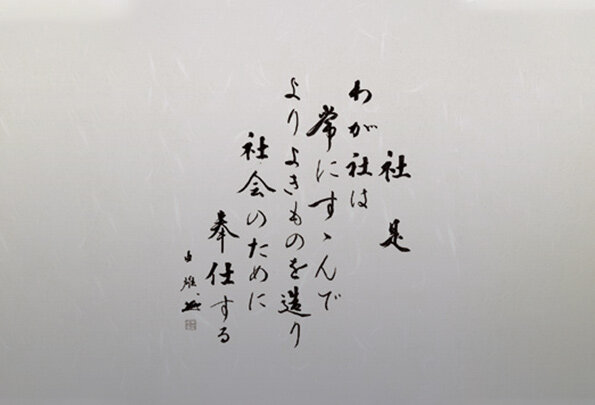 社是
わが社は
常にすゝんで
よりよきものを造り
社会のために
奉仕する
由雄